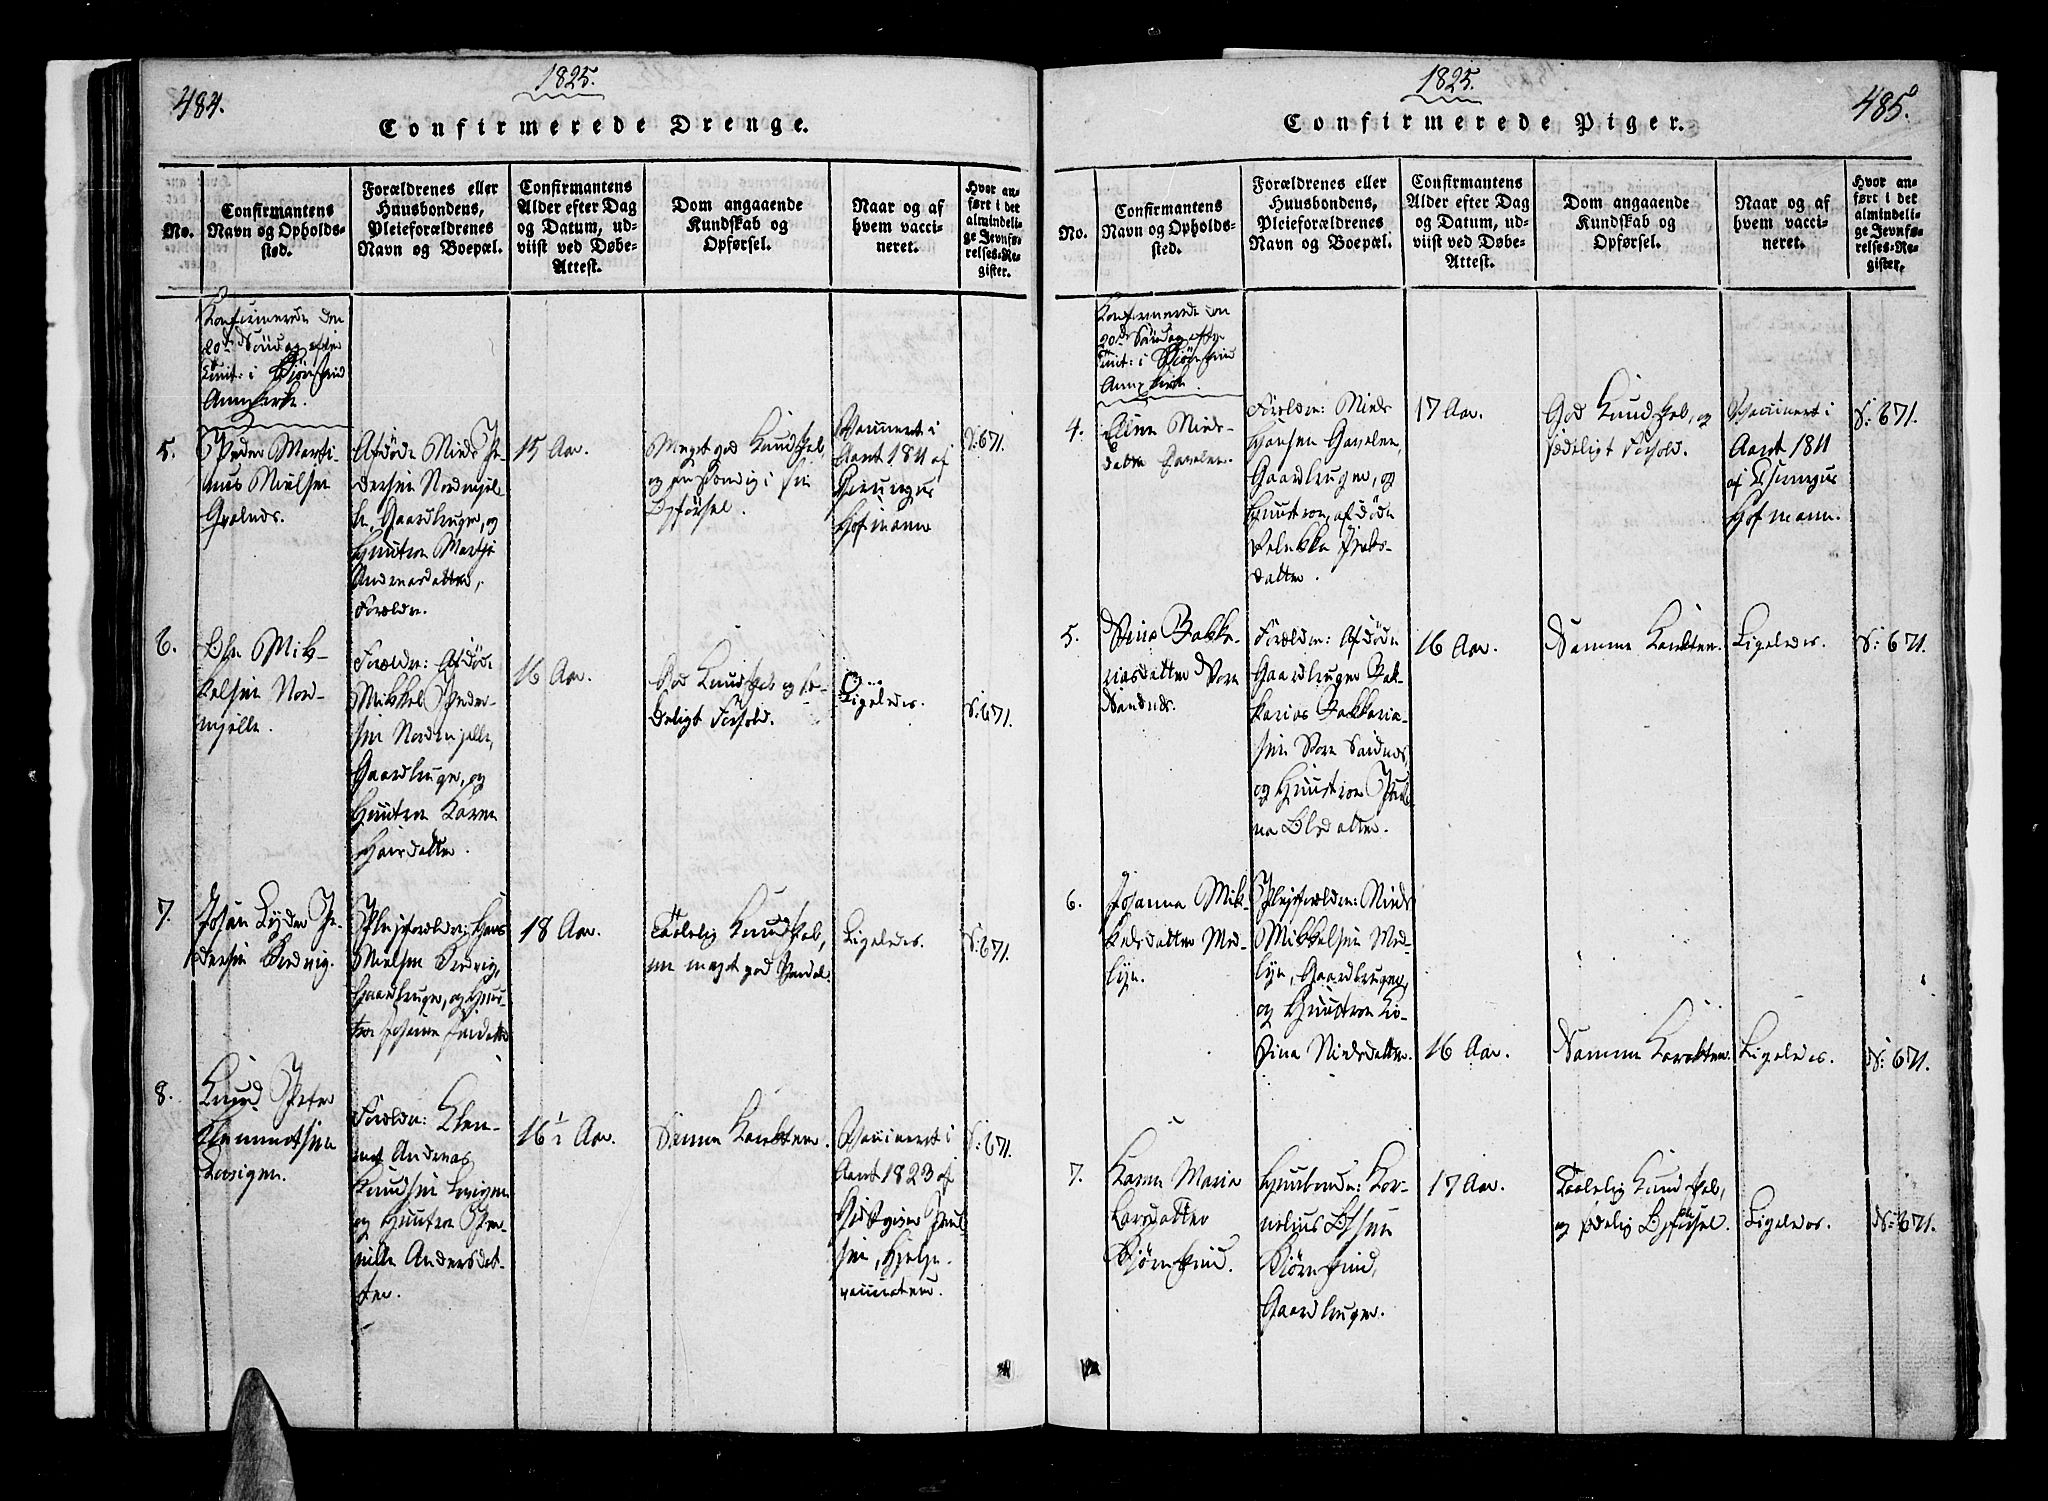 484.
1825.
Confirmerede Drenge.
No.
Confirmantens
Navn og Opholds-
sted.
Forældrenes eller
Huusbondens,
Pleieforældrenes
Navn og Boepæl.
Confirmantens
Alder efter Dag
og Datum, ud-
viist ved Døbe-
Attest.
Dom angaaende
Kundskab og
Opførsel.
Naar og af
hvem vacci-
neret.
Hvor an-
ført i det
almindeli-
ge Jevnfø-
relses-Re-
gister.
Confirmerede den
20de Søndag efter
Trinit: i
Annexkirke.
5.
Peder Marti-
nus Nielsen
Afdøde Niels Pe-
dersen Nordmjel-
le, Gaardbruger, og
Hustroe
Andreasdatter,
Forældre.
15 Aar.
Meget god Kundskab,
og anstændig i sin
Opførsel.
Vaccineret i
Aaret 1811 af
Chirurgus
Hofmann
N: 671.
6.
Ole Mik-
kelsen Nord-
mjelle.
Forældre: Afdøde
Mikkel Peder-
sen Nordmjelle,
Gaardbruger, og
Hustroe Karen
Hansdatter.
16 Aar.
God Kundskab og sæ-
deligt Forhold.
Ligeledes.
N: 671.
7.
Johan Lyder Pe-
dersen Bredvig.
Plejeforældre: Hans
Nielsen Bredvig,
Gaardbruger, og Hus-
troe Johanna
18 Aar.
Taalelig Kundskab,
en meget god Vandel.
Ligeledes.
N: 671.
8.
Knud Peter
Klemmetsen
Forældre: Klem-
met Andreas
Knudsen
og Hustroe Per-
nille Andersdat-
ter.
16 1/2 Aar.
Samme Karakteer.
Vaccineret i
Aaret 1823 af
Paul-
sen, Hjelpe-
vaccinateur.
N: 671.
1825.
485.
Confirmerede Piger.
No.
Confirmantens
Navn og Opholds-
sted.
Forældrenes eller
Huusbondens,
Pleieforældrenes
Navn og Boepæl.
Confirmantens
Alder efter Dag
og Datum, ud-
viist ved Døbe-
Attest.
Dom angaaende
Kundskab og
Opførsel.
Naar og af
hvem vacci-
neret.
Hvor an-
ført i det
almindeli-
ge Jevnfø-
relses-Re-
gister.
Confirmerede den
20de Søndag efter
Trinit: i
Annexkirke.
4.
Niels-
datter
Forældre: Niels
Hansen
Gaardbruger, og
Hustroe, afdøde
datter.
17 Aar.
God Kundskab, og
sædeligt Forhold.
Vaccineret i
Aaret 1811
af Chirurgus
Hofmann.
N: 671.
5.
Zakka-
riasdatter Store
Sandnes.
Forældre: Afdøde
Gaardbruger Zak-
karias Zakkaria-
sen Store Sandnes,
og Hustroe
Olsdatter.
16 Aar.
Samme Karakteer.
Ligeledes.
N: 671.
6.
Johanna Mik-
kelsdatter Med-
byn.
Plejeforældre: Niels
Mikkelsen Med-
byn, Gaardbruger,
og Hustroe
Nielsdatter.
16 Aar.
Samme Karakteer.
Ligeledes.
N: 671.
7.
Karen Maria
Larsdatter
Huusbonde: Kor-
nelius Olsen
Gaardbruger.
17 Aar.
Taalelig Kundskab,
og sædelig Opførsel.
Ligeledes.
N: 671.